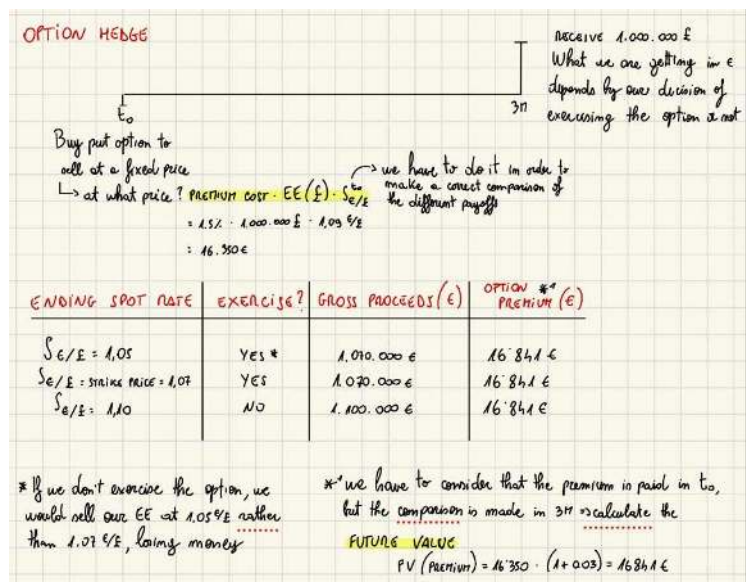 OPTION HEDGE
RECEIVE 1.000.000 £
What we are getting in €
depends by our decision of
exercising the option or not
t₀
3M
Buy put option to
sell at a fixed price
↳ at what price? PREMIUM COST · EE(£) · S^t₀ €/£
→ we have to do it in order to
make a correct comparison of
the different payoffs
= 1.5% · 1.000.000 £ · 1,09 €/£
= 16.350 €
ENDING SPOT RATE EXERCISE? GROSS PROCEEDS (€) OPTION PREMIUM (€) *¹
S €/£ = 1,05 YES * 1.070.000 € 16'841 €
S €/£ = STRIKE PRICE = 1,07 YES 1.070.000 € 16'841 €
S €/£ = 1,10 NO 1.100.000 € 16'841 €
* If we don't exercise the option, we
would sell our EE at 1.05 €/£ rather
than 1.07 €/£, losing money
*¹ we have to consider that the premium is paid in t₀,
but the comparison is made in 3M ⇒ calculate the
FUTURE VALUE
FV (PREMIUM) = 16'350 · (1+0.03) = 16841 €